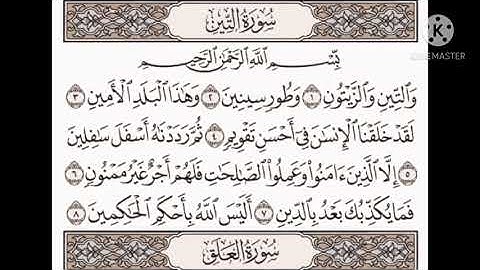 سُورَةُ التِّينِ
بِسْمِ اللَّهِ الرَّحْمَٰنِ الرَّحِيمِ
وَالتِّينِ وَالزَّيْتُونِ ١ وَطُورِ سِينِينَ ٢ وَهَٰذَا الْبَلَدِ الْأَمِينِ ٣
لَقَدْ خَلَقْنَا الْإِنسَٰنَ فِي أَحْسَنِ تَقْوِيمٍ ٤ ثُمَّ رَدَدْنَٰهُ أَسْفَلَ سَٰفِلِينَ
٥ إِلَّا الَّذِينَ ءَامَنُوا وَعَمِلُوا الصَّٰلِحَٰتِ فَلَهُمْ أَجْرٌ غَيْرُ مَمْنُونٍ ٦
فَمَا يُكَذِّبُكَ بَعْدُ بِالدِّينِ ٧ أَلَيْسَ اللَّهُ بِأَحْكَمِ الْحَٰكِمِينَ ٨
سُورَةُ الْعَلَقِ
K
KINEMASTER